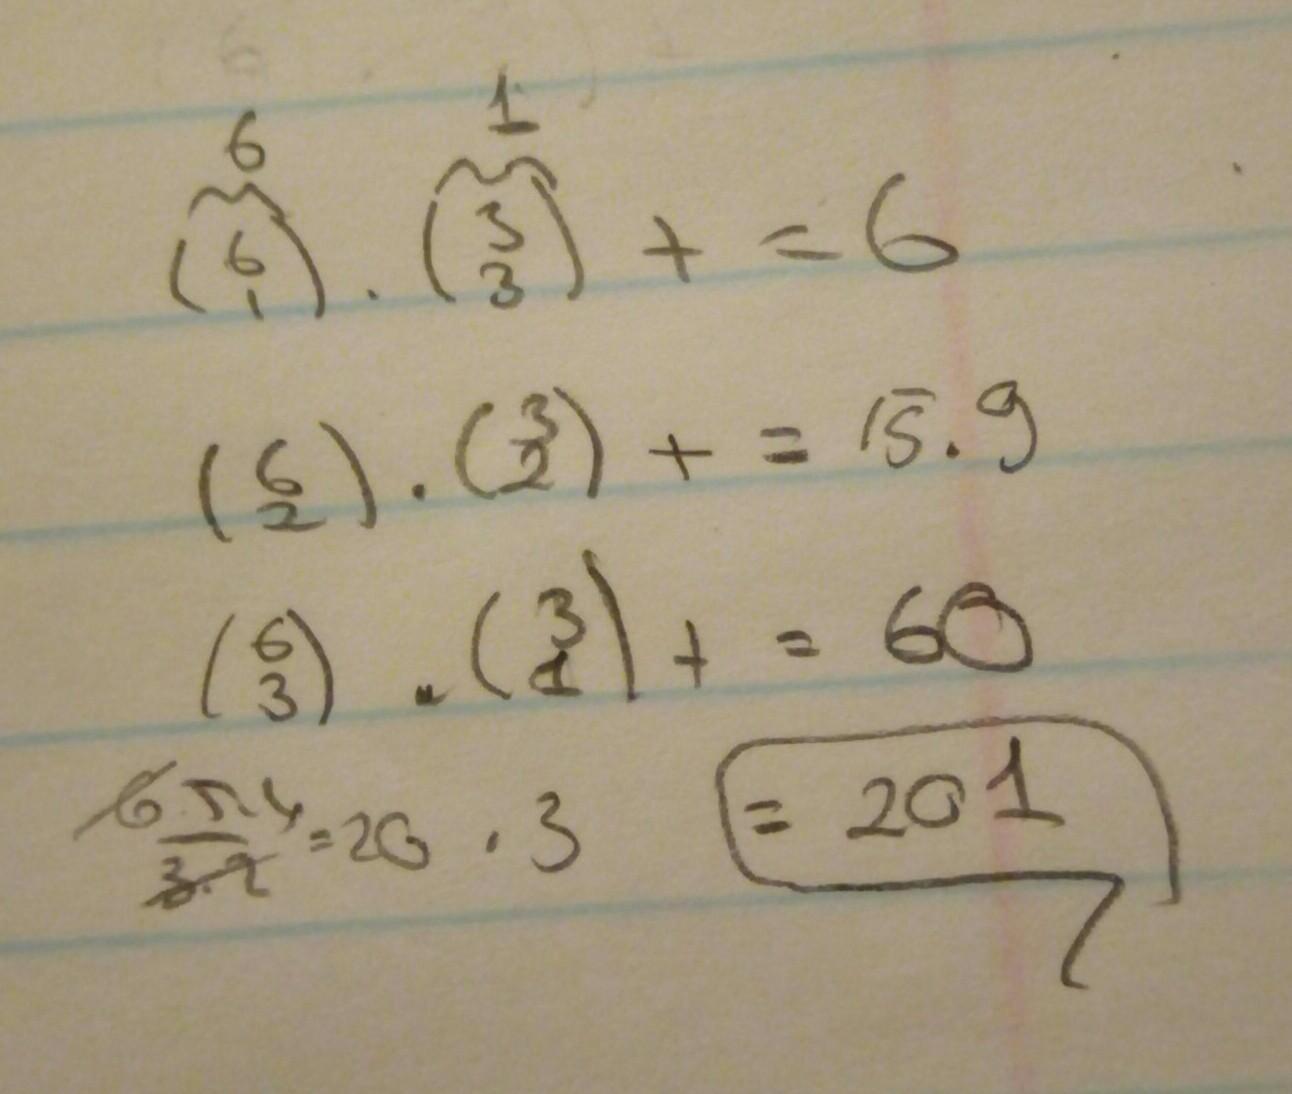 6 1
(6 1) . (3 3) + = 6
(6 2) . (3 2) + = 15.9
(6 3) . (3 1) + = 60
6.5.4 / 3.2 = 20 . 3 = 201